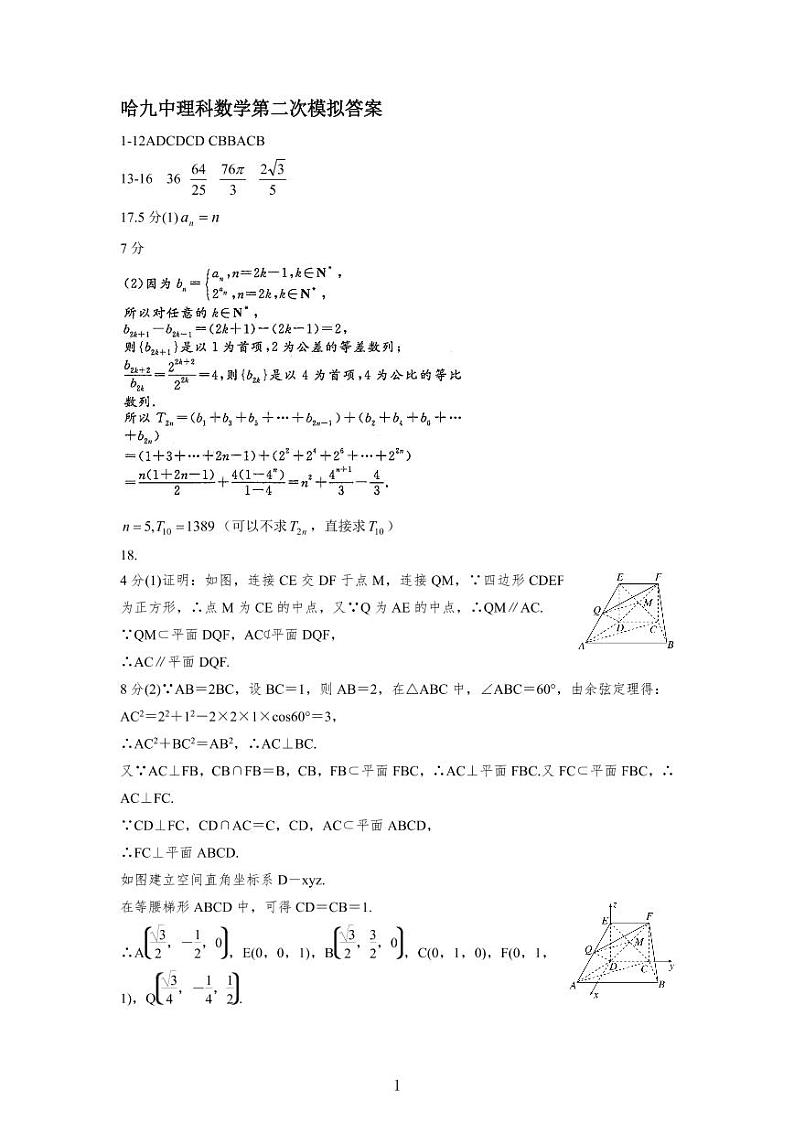 哈九中理科数学第二次模拟答案
1-12ADCDCD CBBACB
13-16 36 64/25 76π/3 2√3/5
17.5 分(1) aₙ = n
7 分
(2)因为 bₙ={aₙ,n=2k-1,k∈N*, 2^{aₙ},n=2k,k∈N*,
所以对任意的 k∈N*,
b_{2k+1}-b_{2k-1}=(2k+1)-(2k-1)=2,
则{b_{2k+1}}是以 1 为首项,2 为公差的等差数列;
b_{2k+2}/b_{2k}=2^{2k+2}/2^{2k}=4,则{b_{2k}}是以 4 为首项,4 为公比的等比
数列.
所以 T_{2n}=(b₁+b₃+b₅+…+b_{2n-1})+(b₂+b₄+b₆+…
+b_{2n})
=(1+3+…+2n-1)+(2²+2⁴+2⁶+…+2^{2n})
=n(1+2n-1)/2+4(1-4ⁿ)/(1-4)=n²+4^{n+1}/3-4/3.
n=5,T₁₀=1389（可以不求T_{2n}，直接求T₁₀）
18.
4 分(1)证明：如图，连接 CE 交 DF 于点 M，连接 QM，∵四边形 CDEF
为正方形，∴点 M 为 CE 的中点，又∵Q 为 AE 的中点，∴QM∥AC.
∵QM⊂平面 DQF，AC⊄平面 DQF，
∴AC∥平面 DQF.
E F Q M D C A B
8 分(2)∵AB＝2BC，设 BC＝1，则 AB＝2，在△ABC 中，∠ABC＝60°，由余弦定理得：
AC²＝2²＋1²－2×2×1×cos60°＝3，
∴AC²＋BC²＝AB²，∴AC⊥BC.
又∵AC⊥FB，CB∩FB＝B，CB，FB⊂平面 FBC，∴AC⊥平面 FBC.又 FC⊂平面 FBC，∴
AC⊥FC.
∵CD⊥FC，CD∩AC＝C，CD，AC⊂平面 ABCD，
∴FC⊥平面 ABCD.
如图建立空间直角坐标系 D－xyz.
在等腰梯形 ABCD 中，可得 CD＝CB＝1.
∴A(√3/2，－1/2，0)，E(0，0，1)，B(√3/2，3/2，0)，C(0，1，0)，F(0，1，
1)，Q(√3/4，－1/4，1/2).
z E F Q M D C y A x B
1